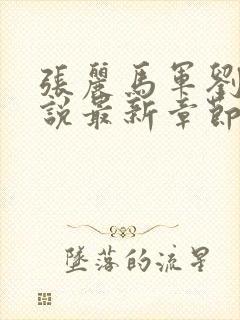 張麗馬軍劉
說最新章節
墜落的流星